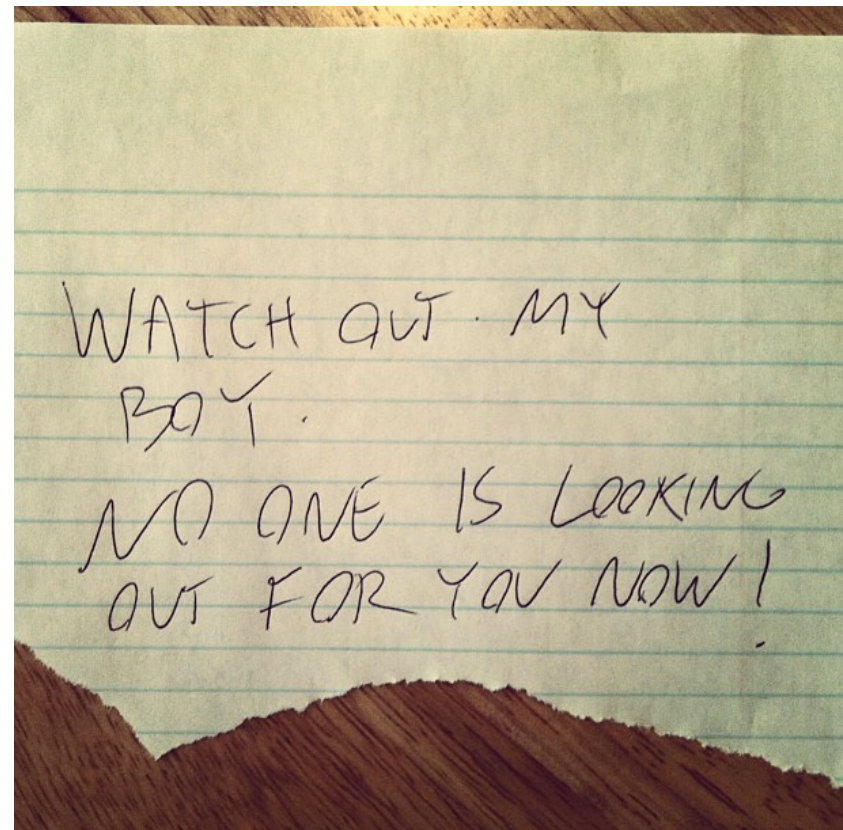 WATCH OUT. MY
BOY.
NO ONE IS LOOKING
OUT FOR YOU NOW!